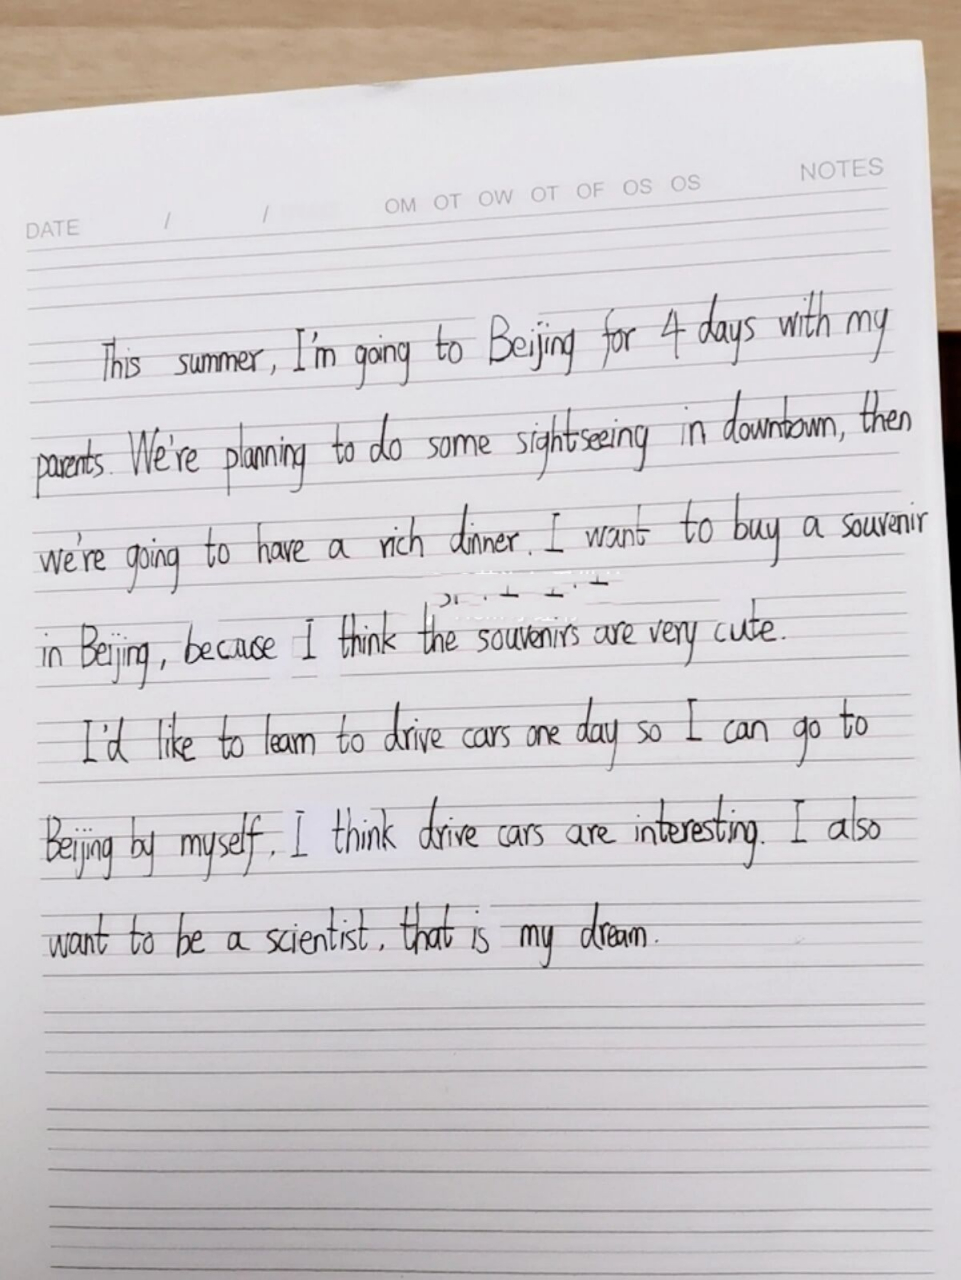 DATE / / OM OT OW OT OF OS OS NOTES
This summer, I'm going to Beijing for 4 days with my
parents. We're planning to do some sightseeing in downtown, then
we're going to have a rich dinner. I want to buy a souvenir
in Beijing, because I think the souvenirs are very cute.
I'd like to learn to drive cars one day so I can go to
Beijing by myself. I think drive cars are interesting. I also
want to be a scientist, that is my dream.